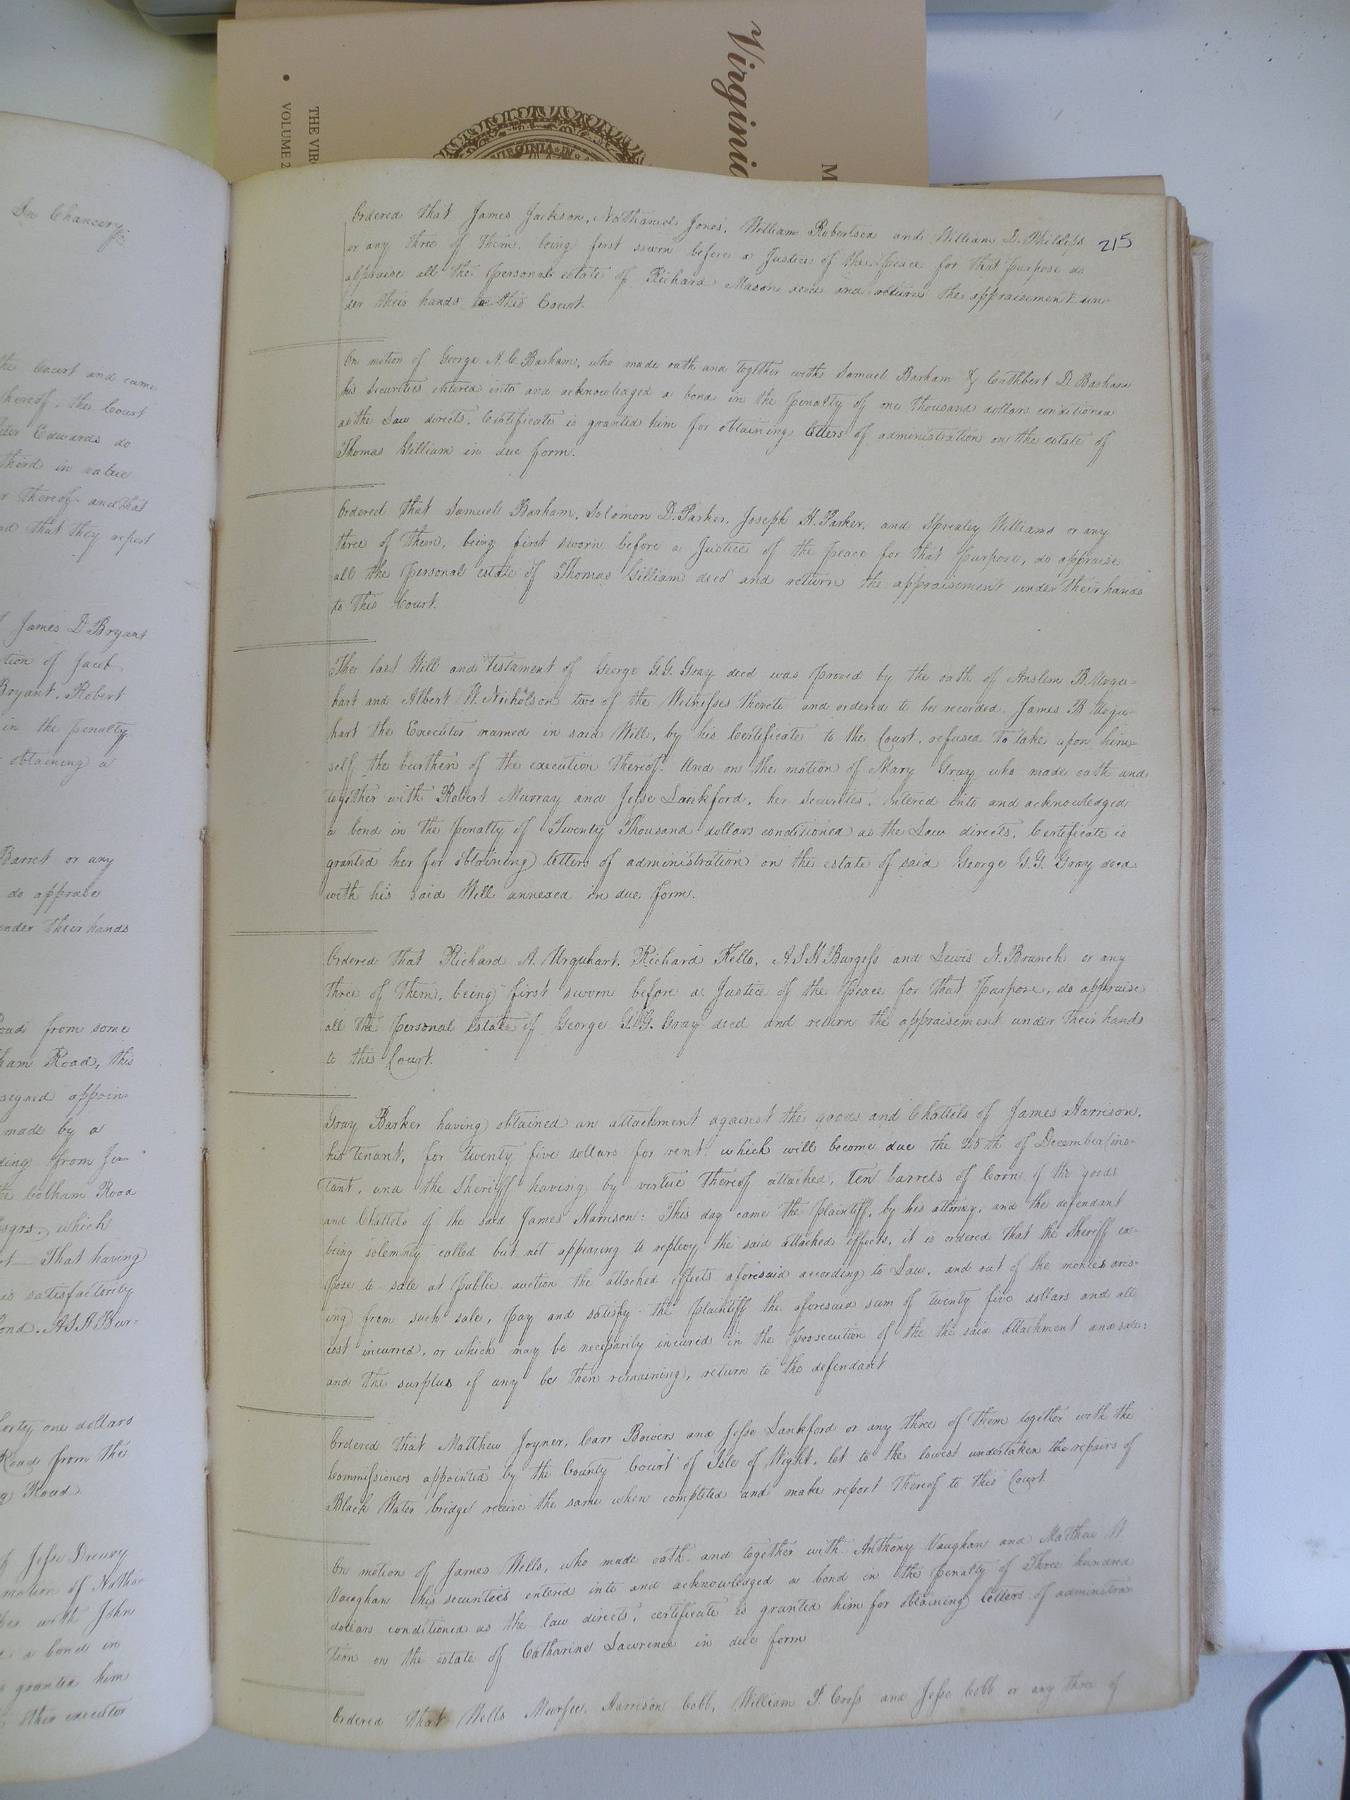 Virginia
M
THE VIR
VOLUME 2
VIRGINIA IN
In Chancery
the Court and came
hereof. the Court
Edwards do
third in value
thereof and that
nd that they report
James D Bryant
tion of Jacob
Bryant, Robert
in the penalty
obtaining a
Barret or any
do appraise
under their hands
road from some
ham Road, this
signed appoin
made by a
ding from Je
the Cotham Road
Esqrs, which
That having
is satisfactority
ond. A S H Bur-
forty one dollars
Road from the
Road
Jesse Drewry
motion of Natha
her with John
a bond in
granted him
other executor
215
Ordered that James Jackson, Nathaniel Jones, William Robertson and William D. Phillips
or any three of them, being first sworn before a Justice of the peace for that purpose do
appraise all the personal estate of Richard Mason decd and return the appraisement un-
der their hands to this Court.
On motion of George N. C. Barham, who made oath and together with Samuel Barham & Cuthbert D. Barham
his securities entered into and acknowledged a bond in the penalty of one thousand dollars conditioned
as the Law directs, Certificate is granted him for obtaining letters of administration on the estate of
Thomas Gilliam in due form.
Ordered that Samuel Barham, Solomon D. Parker, Joseph H. Parker, and Spratley Williams or any
three of them, being first sworn before a Justice of the peace for that purpose, do appraise
all the personal estate of Thomas Gilliam decd and return the appraisement under their hands
to this Court.
The last Will and testament of George G. G. Gray decd was proved by the oath of Anslem B. Urqu-
hart and Albert W. Nicholson two of the Witnesses thereto and ordered to be recorded. James B Urqu-
hart the Executor named in said Will, by his Certificate to the Court, refused to take upon him-
self the burthen of the execution thereof. And on the motion of Mary Gray who made oath and
together with Robert Murray and Jesse Lankford, her securities, entered into and acknowledged
a bond in the penalty of Twenty Thousand dollars conditioned as the Law directs, Certificate is
granted her for obtaining letters of administration on the estate of said George G. G. Gray decd
with his said Will annexed in due form.
Ordered that Richard A. Urquhart, Richard Kello, A S H Burgess and Lewis N. Branch or any
three of them, being first sworn before a Justice of the peace for that Purpose, do appraise
all the personal Estate of George G. G. Gray decd and return the appraisement under their hands
to this Court.
Gray Barker having obtained an attachment against the goods and Chattels of James Harrison,
his tenant, for twenty five dollars for rent which will become due the 25th of December ins-
tant, and the Sheriff having by virtue thereof attached, ten barrels of Corn of the goods
and Chattels of the said James Harrison: This day came the Plaintiff, by his attorney, and the defendant
being solemnly called but not appearing to replevy the said attached effects, it is ordered that the Sheriff ex-
pose to sale at public auction the attached effects aforesaid according to Law, and out of the monies aris-
ing from such sale, pay and satisfy the Plaintiff the aforesaid sum of twenty five dollars and all
cost incurred, or which may be necessarily incured in the prosecution of the the said attachment and sale:
and the surplus if any be then remaining, return to the defendant
Ordered that Matthew Joyner, Carr Bowers and Jesse Lankford or any three of them together with the
Commissioners appointed by the County Court of Isle of Wight, let to the lowest undertaken the repairs of
Black Water bridge receive the same when completed and make report thereof to this Court
On motion of James Wells, who made oath and together with Anthony Vaughan and Matthew W.
Vaughan his securities entered into and acknowledged a bond in the penalty of Three hundred
dollars conditioned as the law directs, certificate is granted him for obtaining letters of administra
tion on the estate of Catharine Lawrence in due form
Ordered that Wells Murfee, Harrison Cobb, William P. Cross and Jesse Cobb or any three of